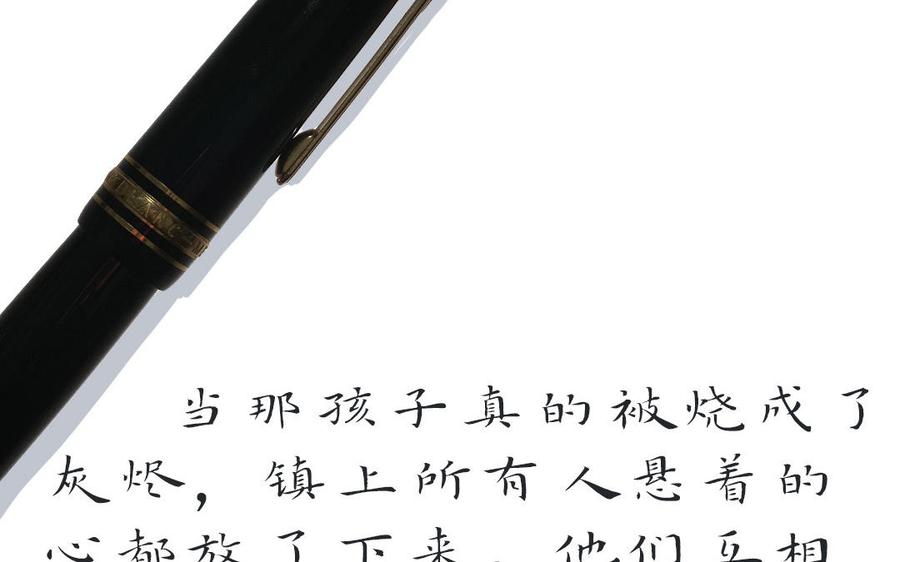 当那孩子真的被烧成了
灰烬，镇上所有人悬着的
心都放了下来，他们互相